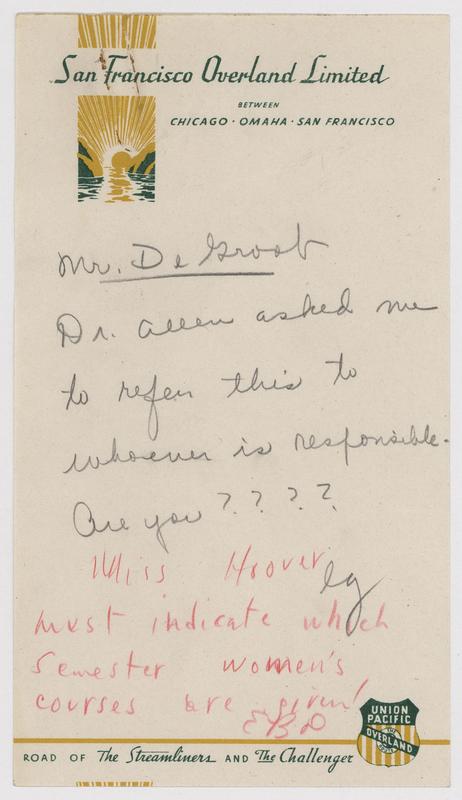 San Francisco Overland Limited
BETWEEN
CHICAGO · OMAHA · SAN FRANCISCO
Mr. De Groot
Dr. Allen asked me
to refer this to
whoever is responsible.
Are you ? ? ? ?
lg
Miss Hoover
must indicate which
semester women's
courses are given!
EBD
UNION
PACIFIC
THE
OVERLAND
ROUTE
ROAD OF The Streamliners AND The Challenger